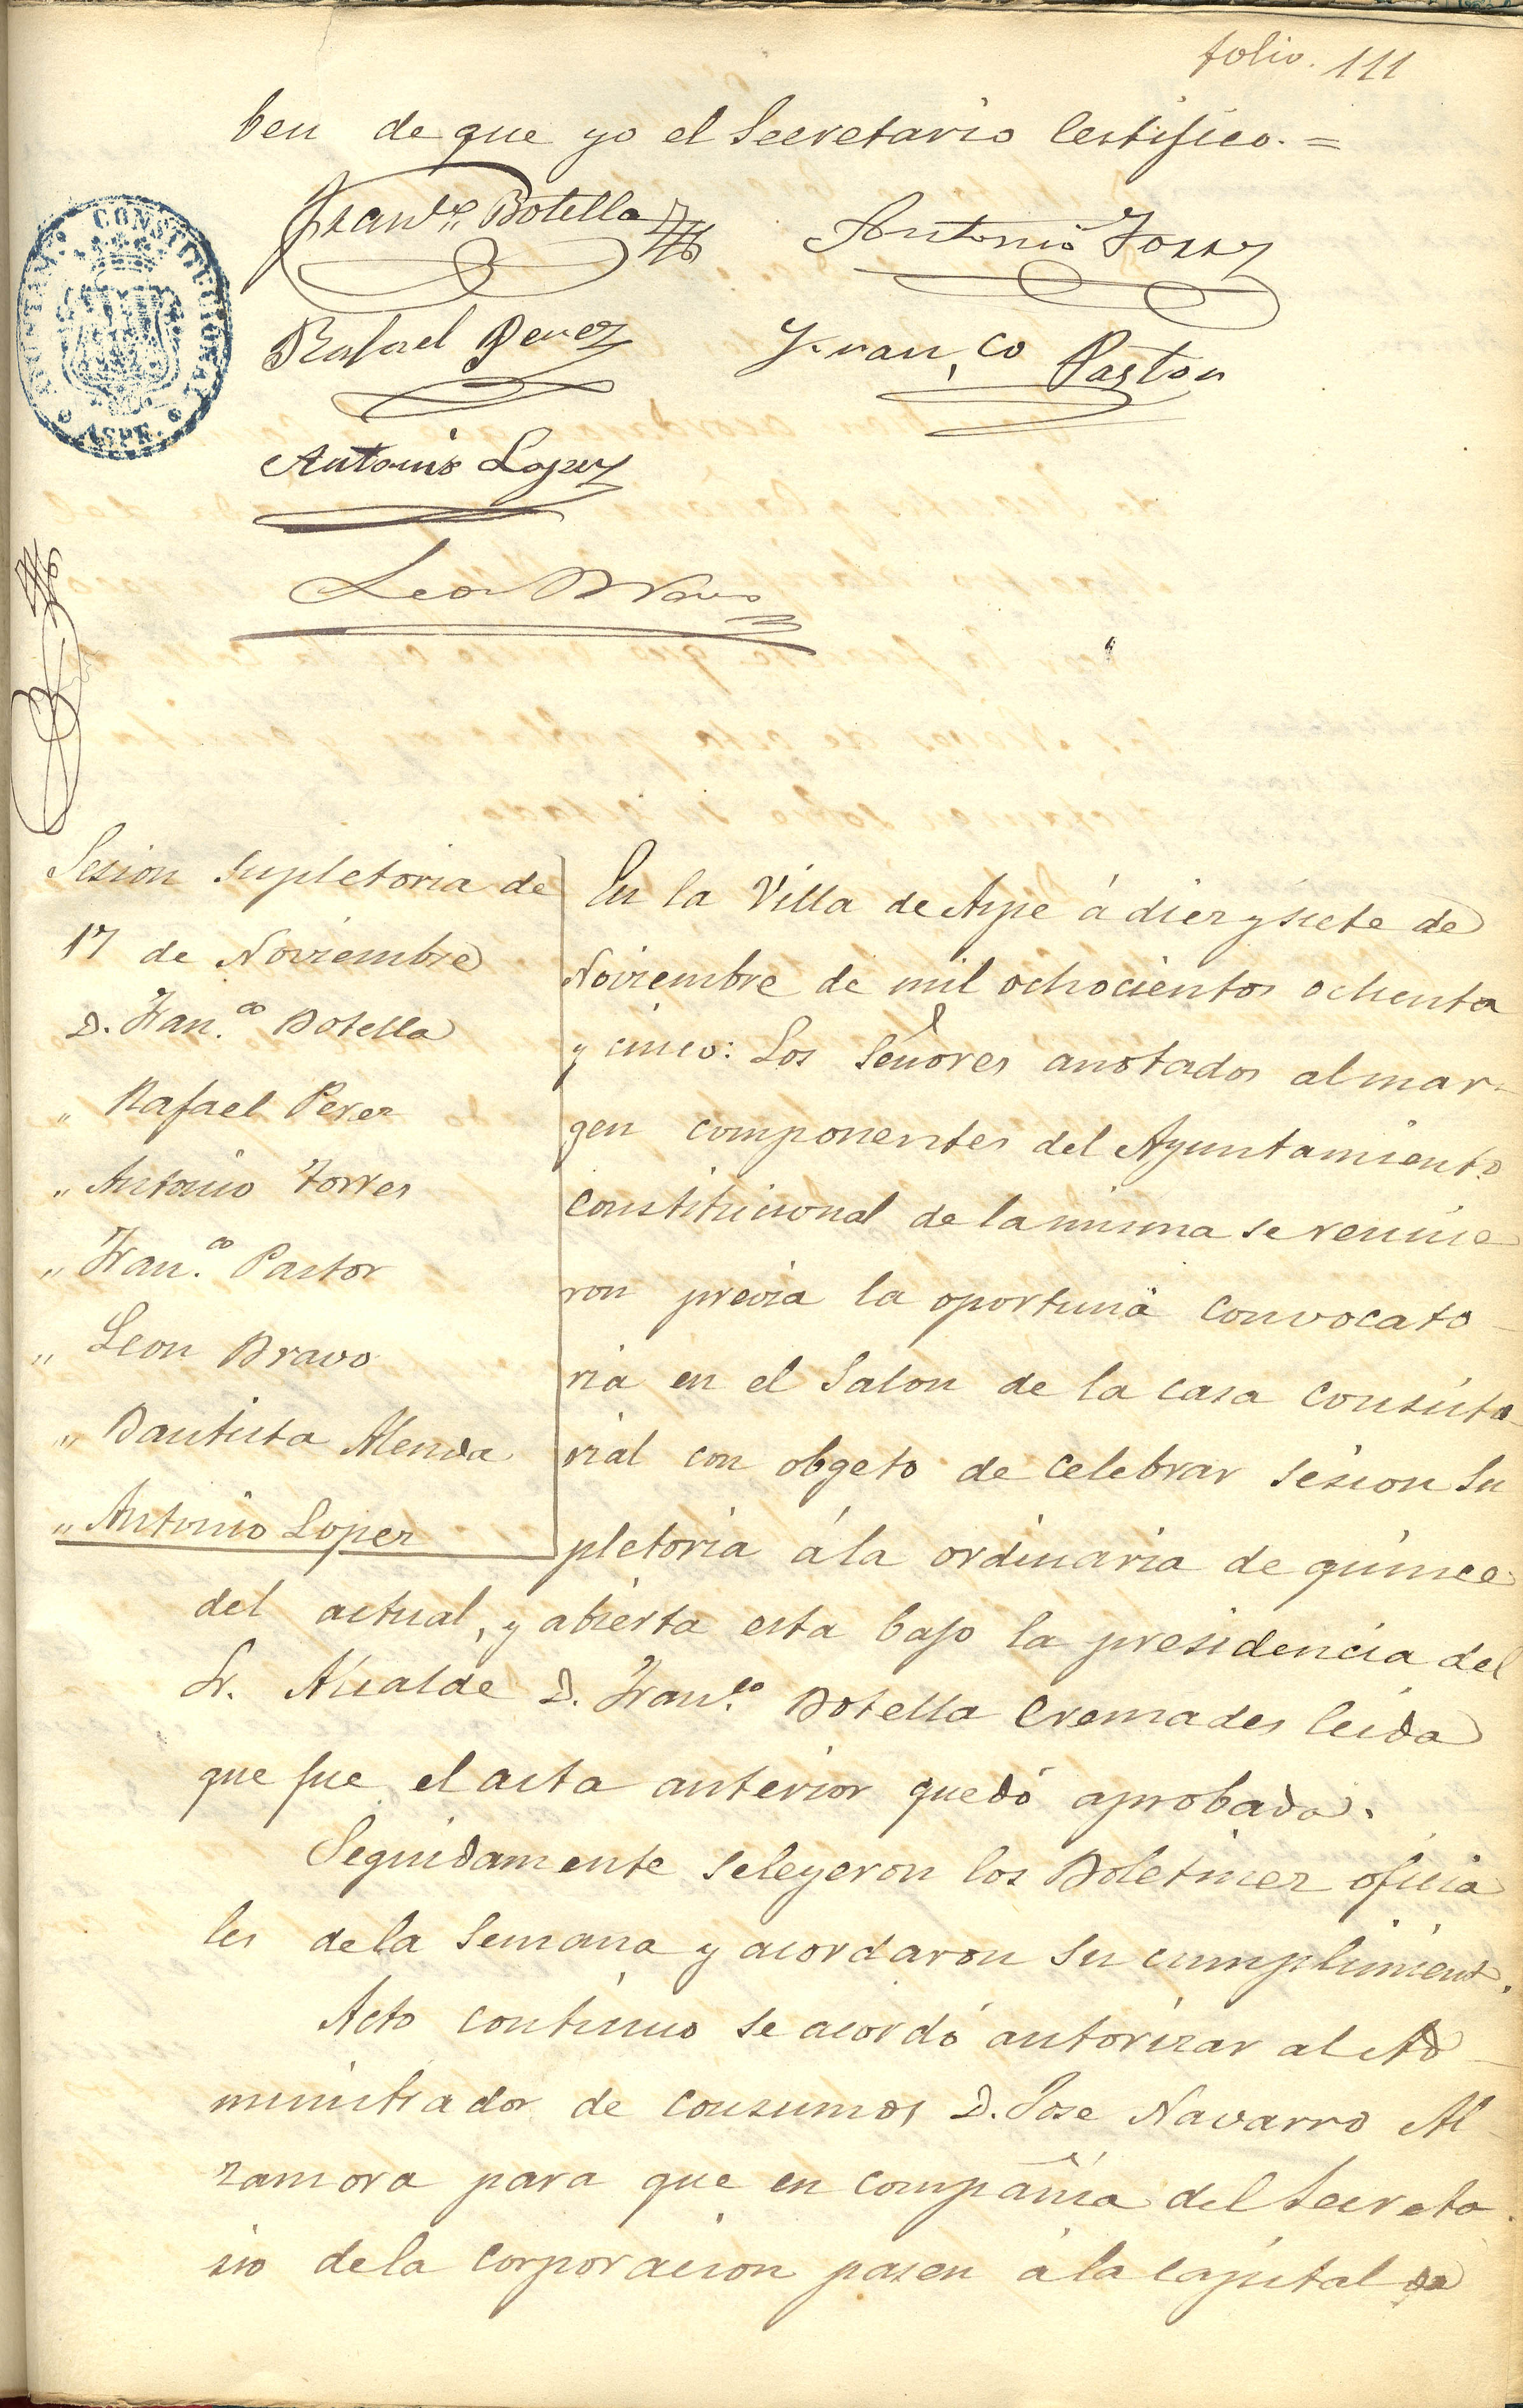 folio. 111
ben de que yo el Secretario Certifico. =
Franco. Botella
Antonio Torres
AYUNTAMTO. CONSTITUCIONAL
ASPE.
Rafael Perez
Franco Pastor
Antonio Lopez
Leon Bravo
Sesion supletoria de
17 de Noviembre
D. Fran.co Botella
" Rafael Perez
" Antonio Torres
" Fran.co Pastor
" Leon Bravo
" Bautista Alenda
" Antonio Lopez
En la Villa de Aspe á diez y siete de
Noviembre de mil ochocientos ochenta
y cinco: Los Señores anotados al mar-
gen componentes del Ayuntamiento
Constitucional de la misma se reunie
ron previa la oportuna convocato-
ria en el Salon de la casa Consisto-
rial con obgeto de celebrar sesion su
pletoria á la ordinaria de quince
del actual, y abierta esta bajo la presidencia del
Sr. Alcalde D. Franco. Botella Cremades leida
que fue el acta anterior quedó aprobada.
Seguidamente se leyeron los Boletines oficia
les de la semana y acordaron su cumplimient.
Acto continuo se acordó autorizar al Ad-
ministrador de consumos D. Jose Navarro Al-
zamora para que en compañia del Secreta
rio de la corporacion pasen á la capital de